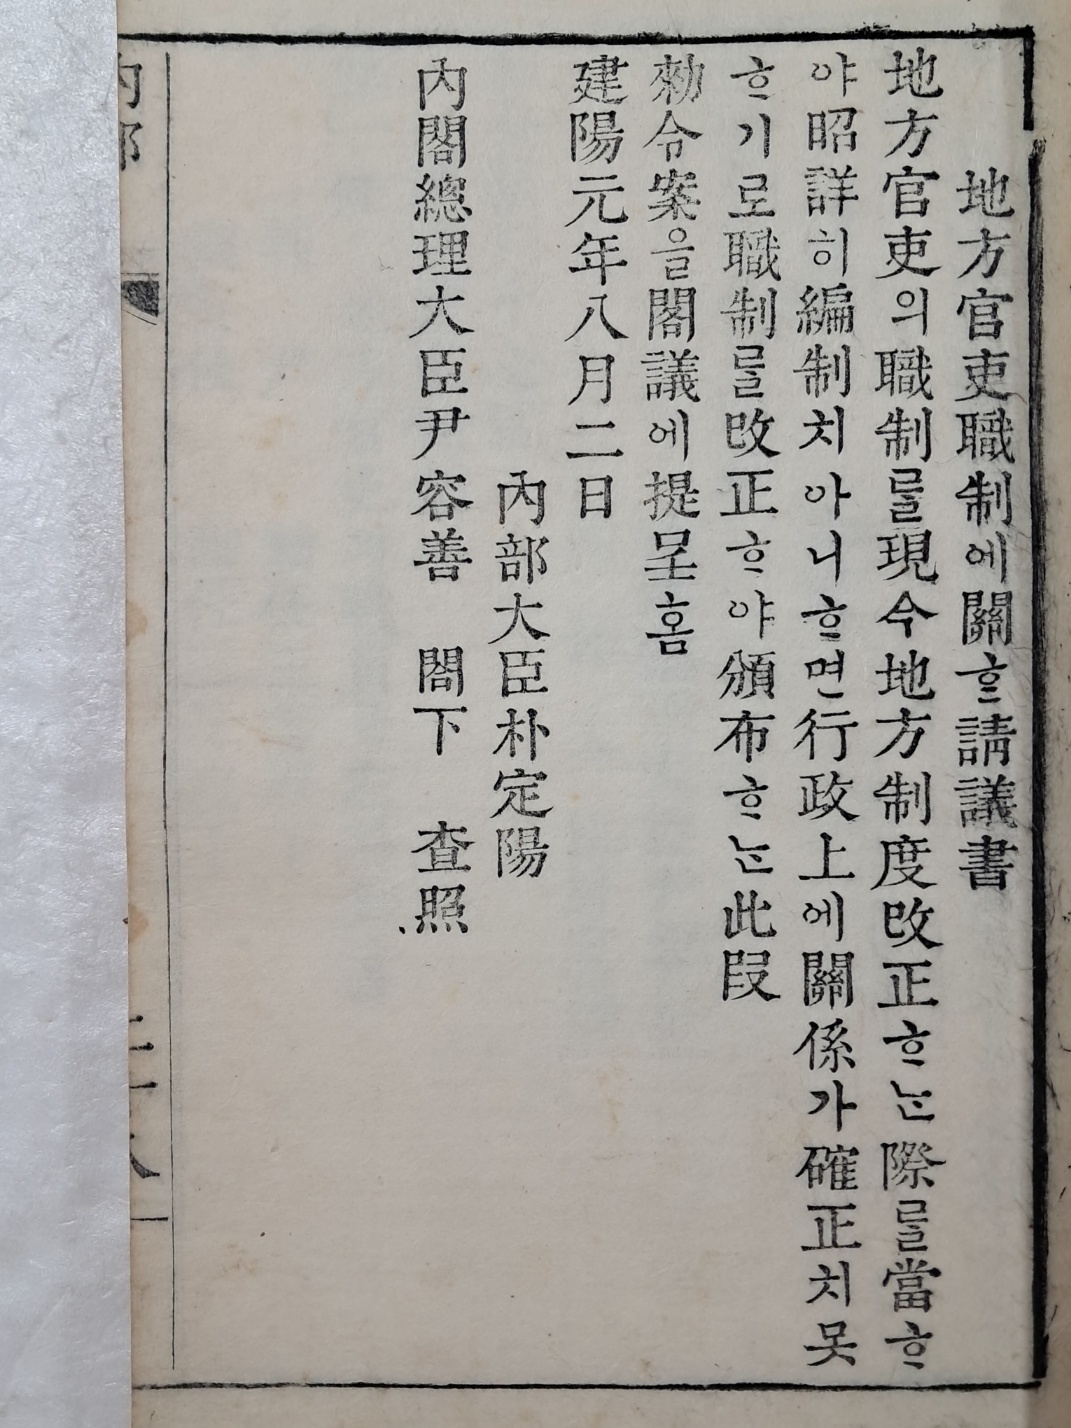 地方官吏職制에關ᄒᆞᆫ請議書
地方官吏의職制를現今地方制度改正ᄒᆞᄂᆞᆫ際를當ᄒᆞ
야昭詳히編制치아니ᄒᆞ면行政上에關係가確正치못
ᄒᆞ기로職制를改正ᄒᆞ야頒布ᄒᆞᄂᆞᆫ此段
勅令案을閣議에提呈홈
建陽元年八月二日
內部大臣朴定陽
內閣總理大臣尹容善 閤下 查照